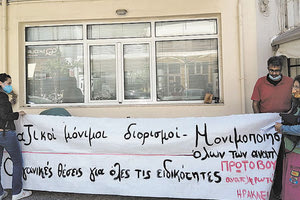 αζικοί μόνιμοι διορισμοί - Μονιμοποίησ
όλων των αναπλ
γανικές θέσεις για όλες τις ειδικότητες
ΠΡΩΤΟΒΟΥ
ΗΡΑΚΛΕΙ